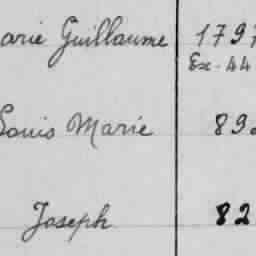 Marie Guillaume 1797
Ex-44
Louis Marie 89
Joseph 82